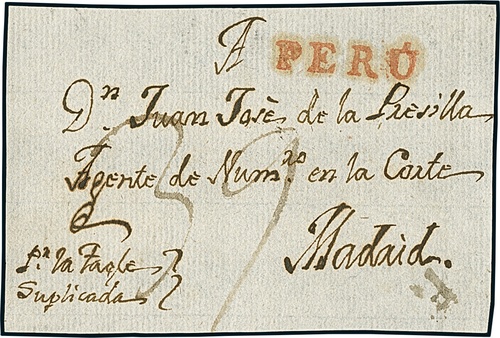 A PERÚ
Dn. Juan Josè de la Presilla
Agente de Numro en la Corte
Madrid.
Pr la Fagle
Suplicada
39